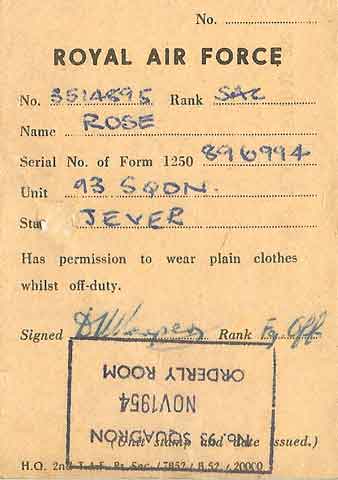 No. ..........
ROYAL AIR FORCE
No. 3514895 Rank SAC
Name ROSE
Serial No. of Form 1250 896994
Unit 93 SQDN.
Sta JEVER
Has permission to wear plain clothes
whilst off-duty.
Signed Rank Fg Off
ORDERLY ROOM
NOV 1954
No. 93 SQUADRON
(Unit stamp and date issued.)
H.Q. 2nd T.A.F. Pt. Sec./7852/8.52/20000